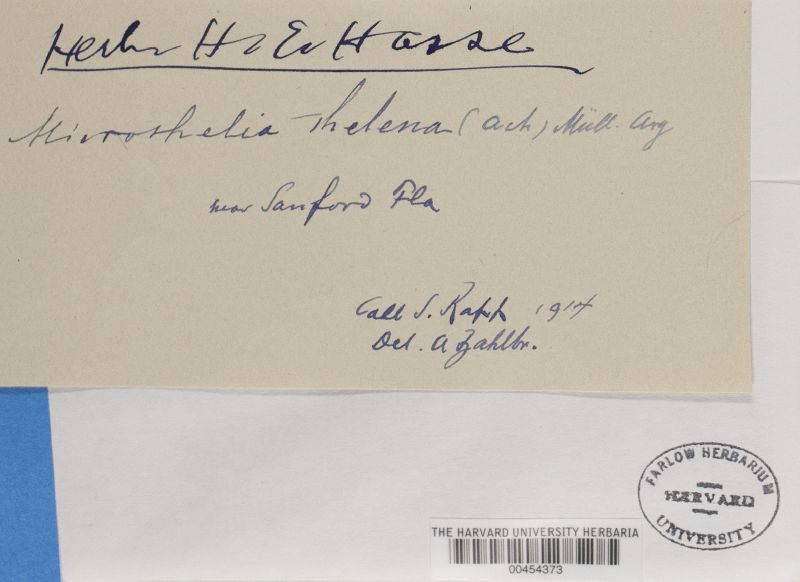 Herb. H. E. Hasse
Microthelia Thelena (Ach) Müll. Arg
near Sanford Fla
Coll S. Rapp 1914
Det. A Zahlbr.
FARLOW HERBARIUM
HARVARD
UNIVERSITY
THE HARVARD UNIVERSITY HERBARIA
00454373